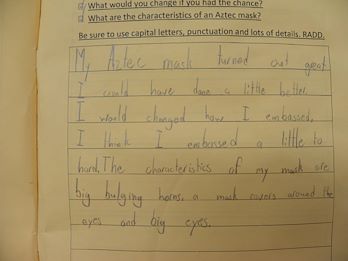 d) What would you change if you had the chance?
What are the characteristics of an Aztec mask?
Be sure to use capital letters, punctuation and lots of details. RADD.
My Aztec mask turned out great
I could have done a little better.
I would changed how I embossed.
I think I embossed a little to
hard. The characteristics of my mask are
big bulging horns, a mask covers around the
eyes and big eyes.